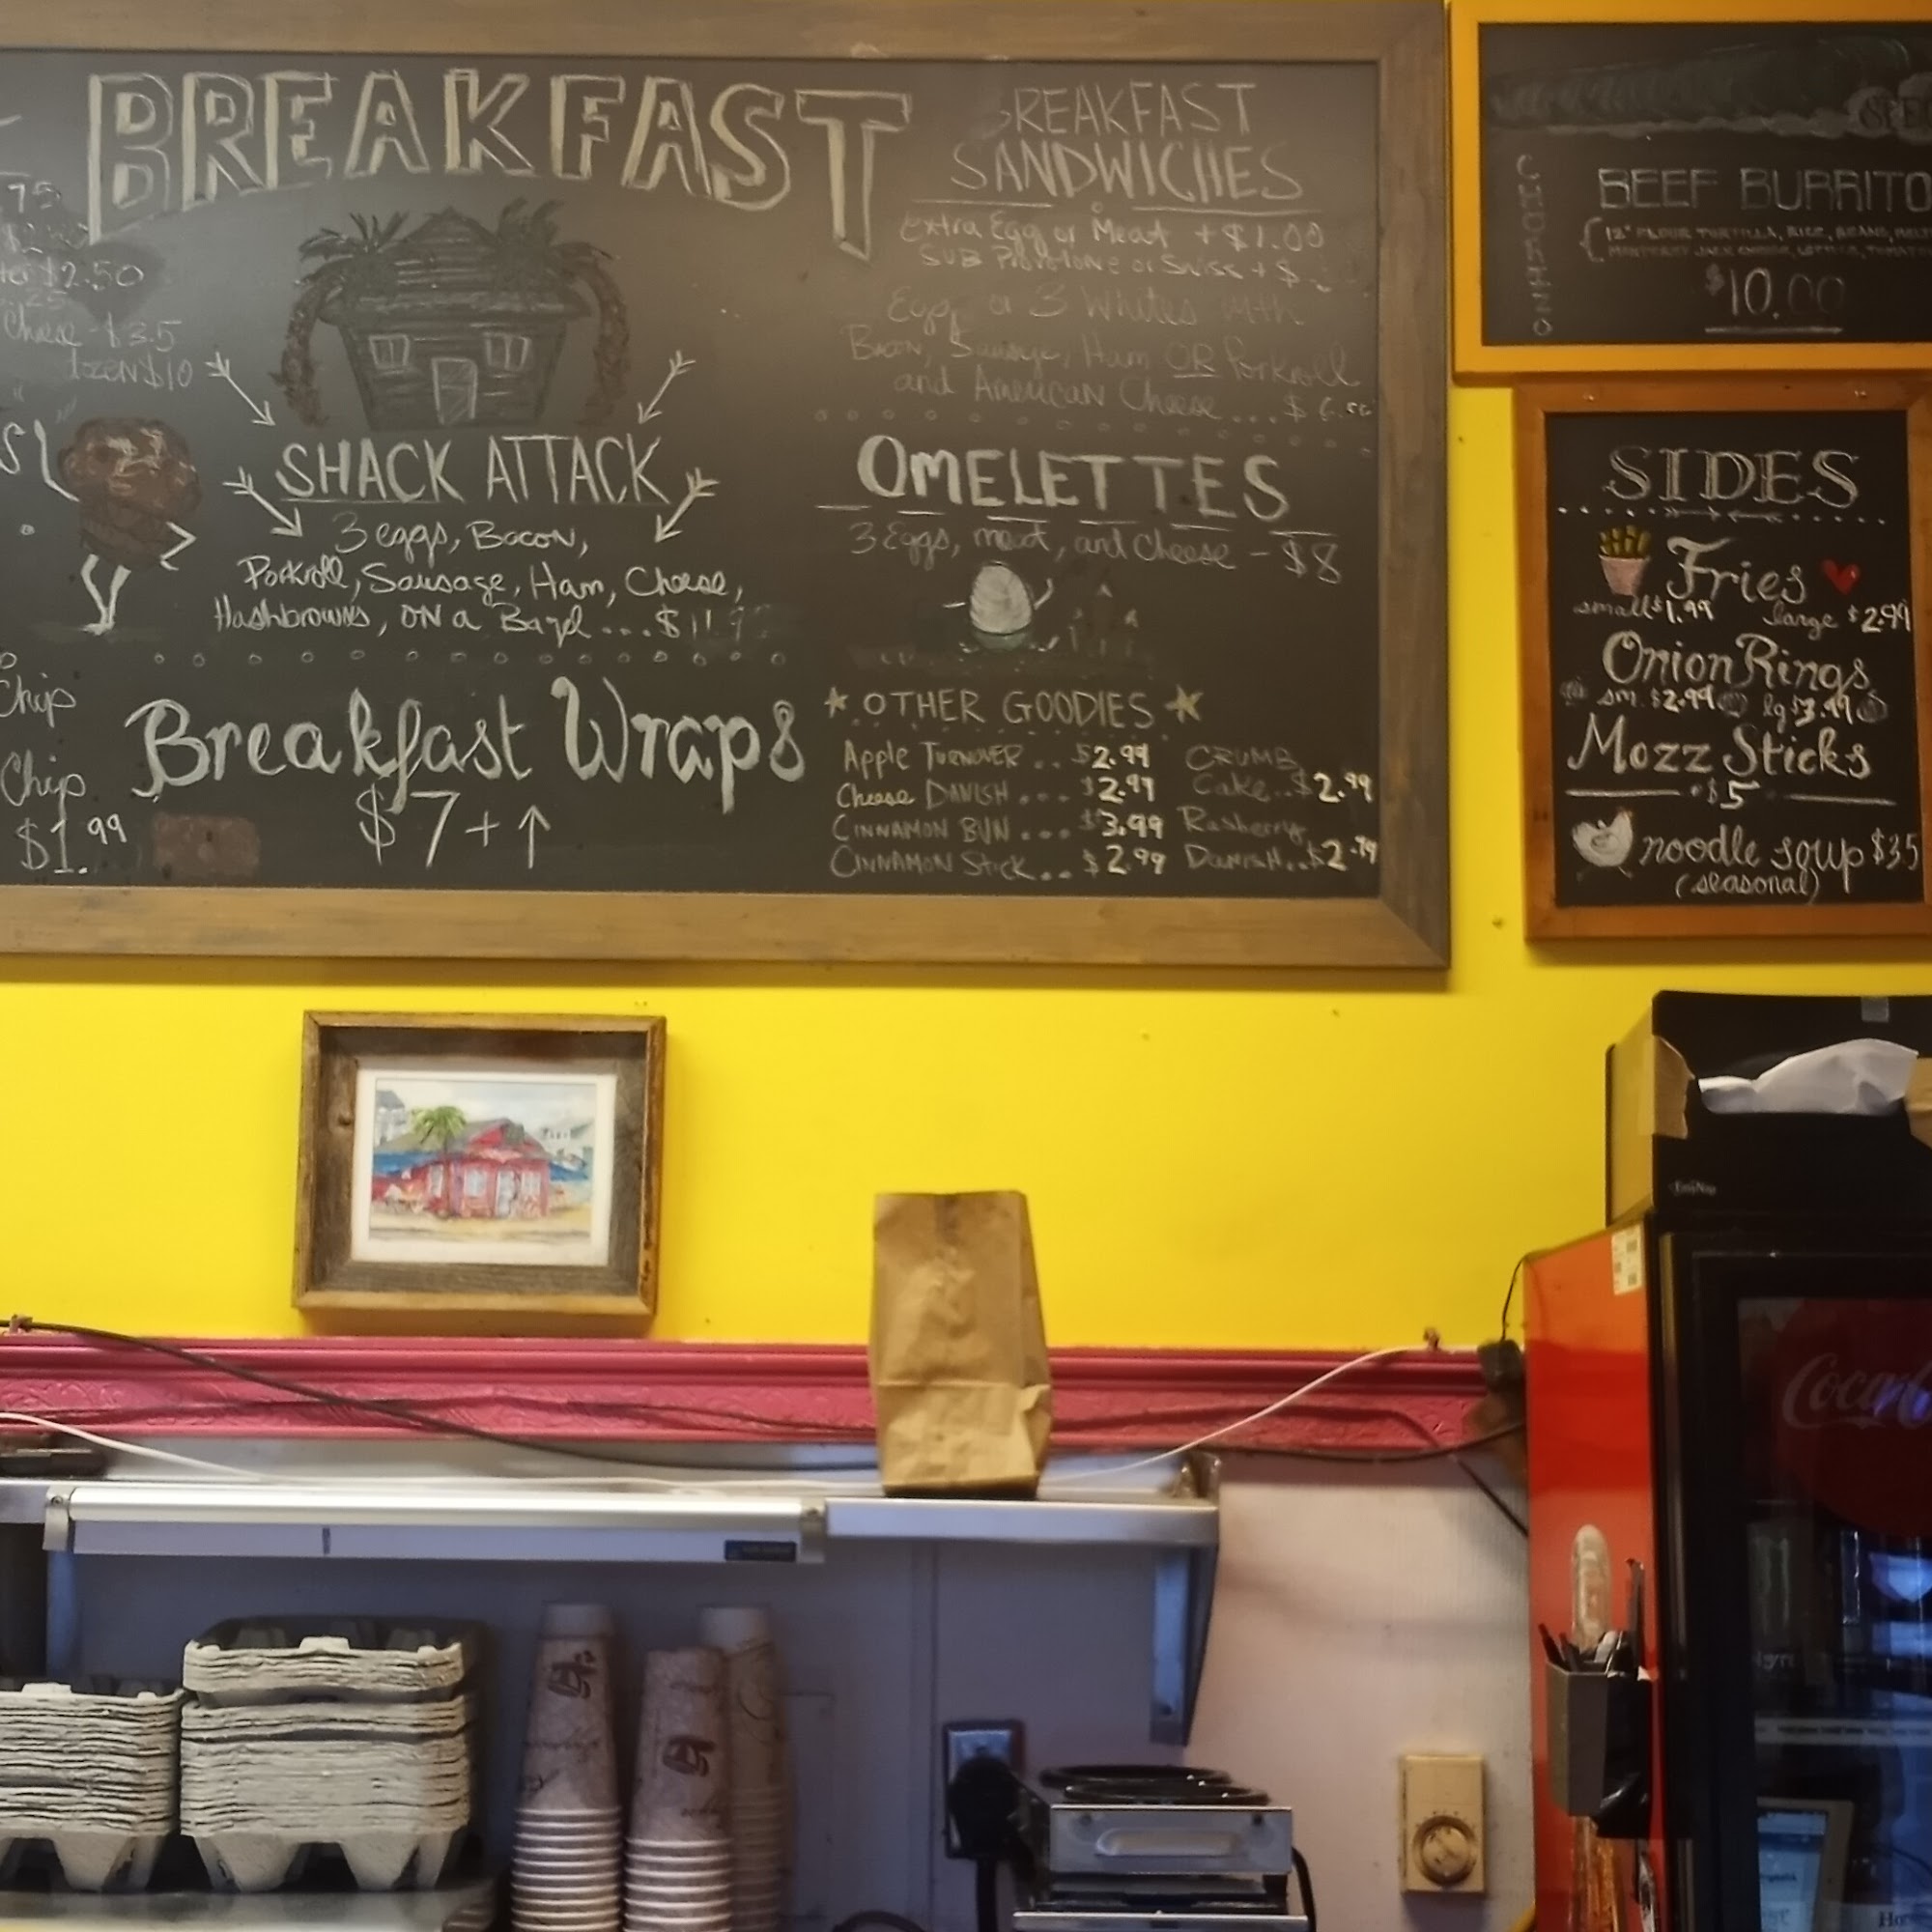 BREAKFAST
75
$2.50
Cheese - $3.5
$10
SHACK ATTACK
3 eggs, Bacon,
Porkroll, Sausage, Ham, Cheese,
Hashbrowns, ON a Bagel ... $11.
Chip
Chip
$1.99
Breakfast Wraps
$7+↑
BREAKFAST
SANDWICHES
Extra Egg or Meat +$1.00
SUB Provolone or Swiss + $
Egg or 3 Whites with
Bacon, Sausage, Ham OR Porkroll
and American Cheese... $6.50
OMELETTES
3 Eggs, meat, and Cheese - $8
★ OTHER GOODIES ★
Apple Turnover .. $2.99
Cheese DANISH ... $2.99
CINNAMON BUN ... $3.99
CINNAMON Stick... $2.99
CRUMB
Cake..$2.99
Rasberry
Danish..$2.79
BEEF BURRITO
12" FLOUR TORTILLA, RICE, BEANS,
MONTEREY JACK CHEESE, LETTUCE,
$10.00
SIDES
Fries
small $1.99 large $2.99
Onion Rings
sm. $2.99 lg $3.99
Mozz Sticks
$5
noodle soup $35
(seasonal)